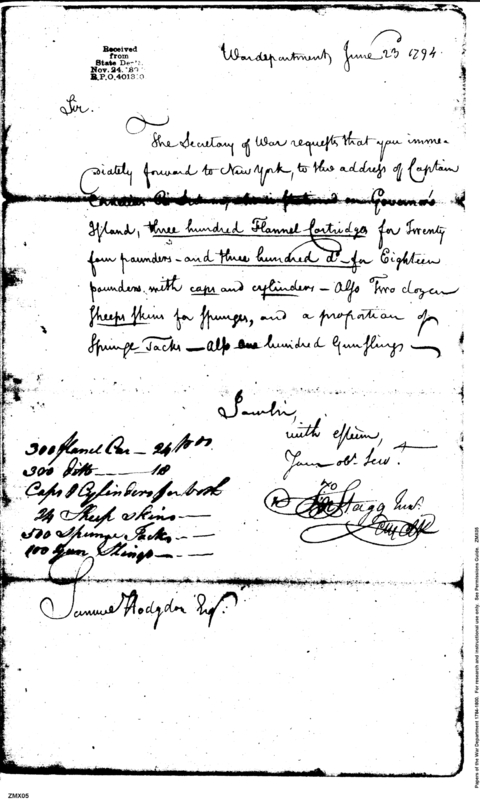 Received
from
State Dep't.
Nov. 24. '87
R.P.O. 401310
War department, June 23 1794.
Sir.
The Secretary of War requests that you imme=
diately forward to New York, to the address of Captain
on Governor's
Island, three hundred Flannel Cartridges for Twenty
four pounders – and three hundred do – for Eighteen
pounders with caps and cylinders – Also Two dozen
Sheeps Skins for Spunges, and a proportion of
Spunge Tacks – Also one hundred Gun slings –
I am Sir,
with esteem,
Your obt. Servt.
Jno Stagg Junr.
300 flanel Car – 24
300 ditto – 18
Caps & Cylinders for both
24 Sheep Skins –
500 Spunge Tacks –
100 Gun Slings –
Samuel Hodgdon Esqr.
Papers of the War Department 1784-1800. For research and instructional use only. See Permissions Guide. ZMX05
ZMX05